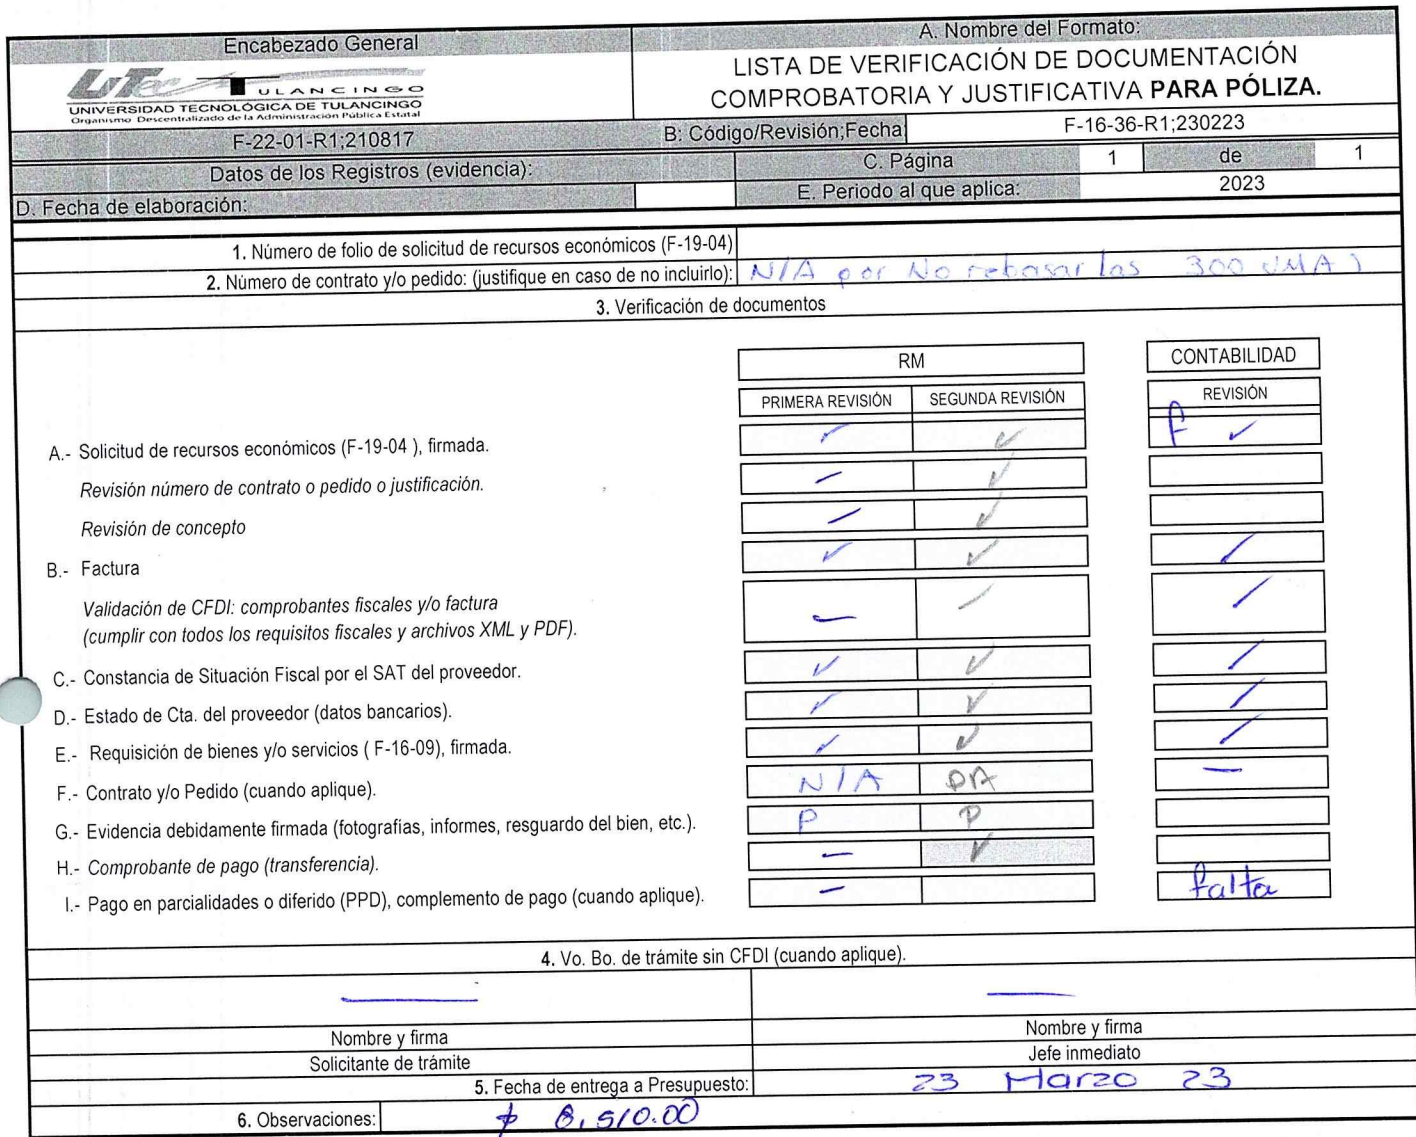 Encabezado General
A. Nombre del Formato:
UTec TULANCINGO
UNIVERSIDAD TECNOLÓGICA DE TULANCINGO
Organismo Descentralizado de la Administración Pública Estatal
LISTA DE VERIFICACIÓN DE DOCUMENTACIÓN
COMPROBATORIA Y JUSTIFICATIVA PARA PÓLIZA.
F-22-01-R1;210817
B: Código/Revisión;Fecha
F-16-36-R1;230223
Datos de los Registros (evidencia):
C. Página 1 de 1
D. Fecha de elaboración:
E. Periodo al que aplica: 2023
1. Número de folio de solicitud de recursos económicos (F-19-04)
2. Número de contrato y/o pedido: (justifique en caso de no incluirlo): N/A por No rebasar las 300 UMAS
3. Verificación de documentos
RM
CONTABILIDAD
PRIMERA REVISIÓN SEGUNDA REVISIÓN REVISIÓN
A.- Solicitud de recursos económicos (F-19-04 ), firmada. ✓ ✓ F ✓
Revisión número de contrato o pedido o justificación. – ✓
Revisión de concepto – ✓
B.- Factura ✓ ✓ /
Validación de CFDI: comprobantes fiscales y/o factura
(cumplir con todos los requisitos fiscales y archivos XML y PDF). – / /
C.- Constancia de Situación Fiscal por el SAT del proveedor. ✓ ✓ /
D.- Estado de Cta. del proveedor (datos bancarios). ✓ ✓ /
E.- Requisición de bienes y/o servicios ( F-16-09), firmada. ✓ ✓ /
F.- Contrato y/o Pedido (cuando aplique). N/A –
G.- Evidencia debidamente firmada (fotografias, informes, resguardo del bien, etc.). P P
H.- Comprobante de pago (transferencia). – ✓
I.- Pago en parcialidades o diferido (PPD), complemento de pago (cuando aplique). – falta
4. Vo. Bo. de trámite sin CFDI (cuando aplique).
Nombre y firma
Nombre y firma
Solicitante de trámite
Jefe inmediato
5. Fecha de entrega a Presupuesto: 23 Marzo 23
6. Observaciones: $ 8,510.00